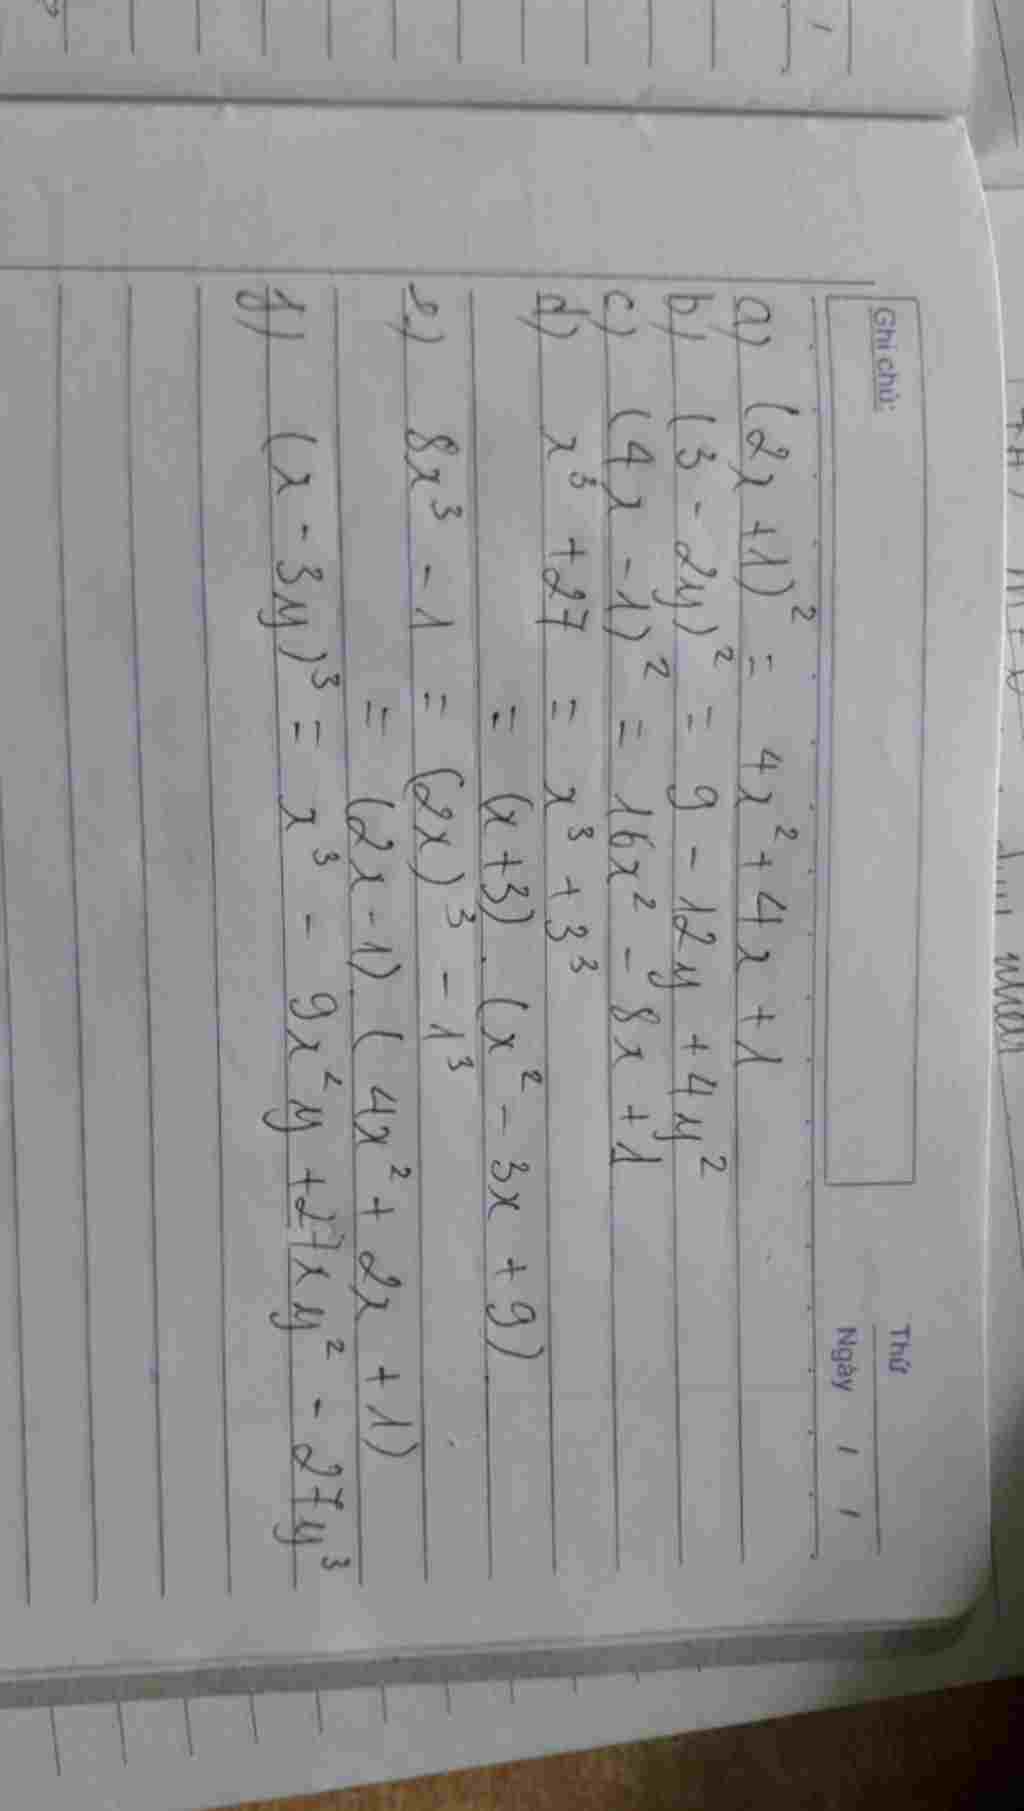 Ghi chú:
Thứ
Ngày / /
a) (2x + 1)² = 4x² + 4x + 1
b) (3 - 2y)² = 9 - 12y + 4y²
c) (4x - 1)² = 16x² - 8x + 1
d) x³ + 27 = x³ + 3³
= (x + 3) . (x² - 3x + 9)
e) 8x³ - 1 = (2x)³ - 1³
= (2x - 1) (4x² + 2x + 1)
f) (x - 3y)³ = x³ - 9x²y + 27xy² - 27y³